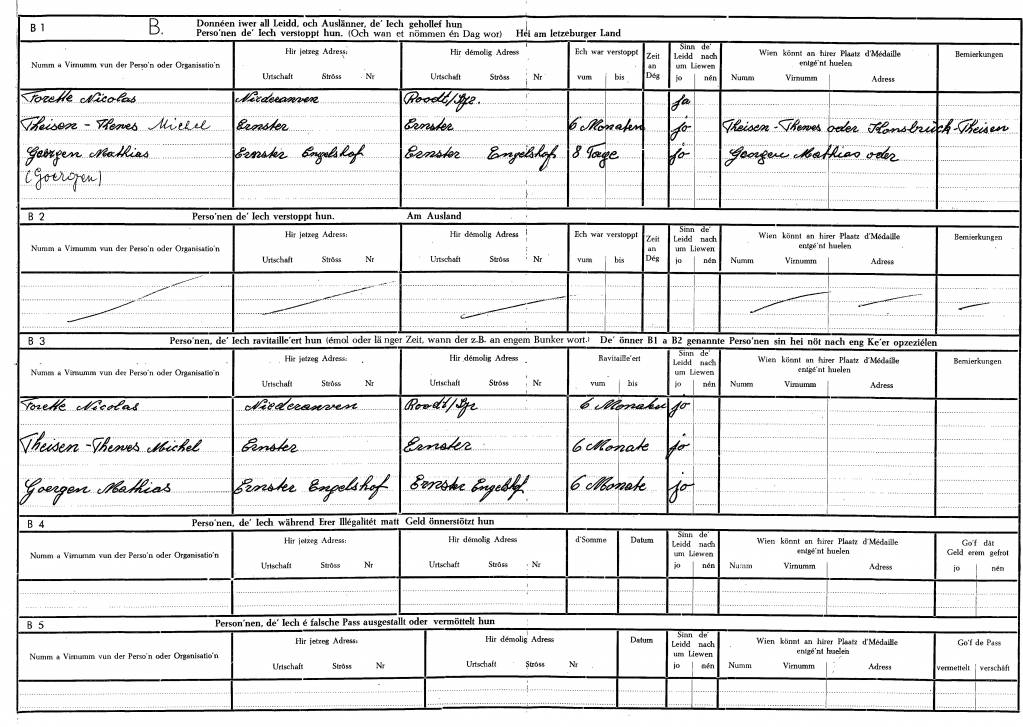 B 1 B. Donnéen iwer all Leidd, och Auslänner, de' Iech gehollef hun
Perso'nen de' Iech verstoppt hun. (Och wan et nömmen én Dag wor) Hei am letzeburger Land
Numm a Virnumm vun der Perso'n oder Organisatio'n Hir jetzeg Adress: Urtschaft Ströss Nr Hir démolig Adress Urtschaft Ströss Nr Ech war verstoppt vum bis Zeit an Dég Sinn de' Leidd nach um Liewen jo nén Wien könnt an hirer Plaatz d'Médaille entgé'nt huelen Numm Virnumm Adress Bemierkungen
Torette Nicolas Niederanven Roodt/Syr. ja
Theisen - Thewes Michel Ernster Ernster 6 Monaten jo Theisen-Thewes oder Konsbruck-Theisen
Goergen Mathias Ernster Engelshof Ernster Engelshof 8 Tage jo Georgen Mathias oder
(Goergen)
B 2 Perso'nen de' Iech verstoppt hun. Am Ausland
Numm a Virnumm vun der Perso'n oder Organisatio'n Hir jetzeg Adress: Urtschaft Ströss Nr Hir démolig Adress Urtschaft Ströss Nr Ech war verstoppt vum bis Zeit an Dég Sinn de' Leidd nach um Liewen jo nén Wien könnt an hirer Plaatz d'Médaille entgé'nt huelen Numm Virnumm Adress Bemierkungen
B 3 Perso'nen, de' Iech ravitaille'ert hun (émol oder länger Zeit, wann der z.B. an engem Bunker wort.) De' önner B1 a B2 genannte Perso'nen sin hei nöt nach eng Ke'er opzeziélen
Numm a Virnumm vun der Perso'n oder Organisatio'n Hir jetzeg Adress: Urtschaft Ströss Nr Hir démolig Adress Urtschaft Ströss Nr Ravitaille'ert vum bis Sinn de' Leidd nach um Liewen jo nén Wien könnt an hirer Plaatz d'Médaille entgé'nt huelen Numm Virnumm Adress Bemierkungen
Torette Nicolas Niederanven Roodt/Syr 6 Monaten jo
Theisen - Thewes Michel Ernster Ernster 6 Monate jo
Goergen Mathias Ernster Engelshof Ernster Engelshof 6 Monate jo
B 4 Perso'nen, de' Iech während Erer Illégalitét matt Geld önnerstötzt hun
Numm a Virnumm vun der Perso'n oder Organisatio'n Hir jetzeg Adress: Urtschaft Ströss Nr Hir démolig Adress Urtschaft Ströss Nr d'Somme Datum Sinn de' Leidd nach um Liewen jo nén Wien könnt an hirer Plaatz d'Médaille entgé'nt huelen Numm Virnumm Adress Go'f dát Geld erem gefrot jo nén
B 5 Person'nen, de' Iech é falsche Pass ausgestallt oder vermöttelt hun
Numm a Virnumm vun der Perso'n oder Organisatio'n Hir jetzeg Adress: Urtschaft Ströss Nr Hir démolig Adress: Urtschaft Ströss Nr Datum Sinn de' Leidd nach um Liewen jo nén Wien könnt an hirer Plaatz d'Médaille entgé'nt huelen Numm Virnumm Adress Go'f de Pass vermettelt verschäft